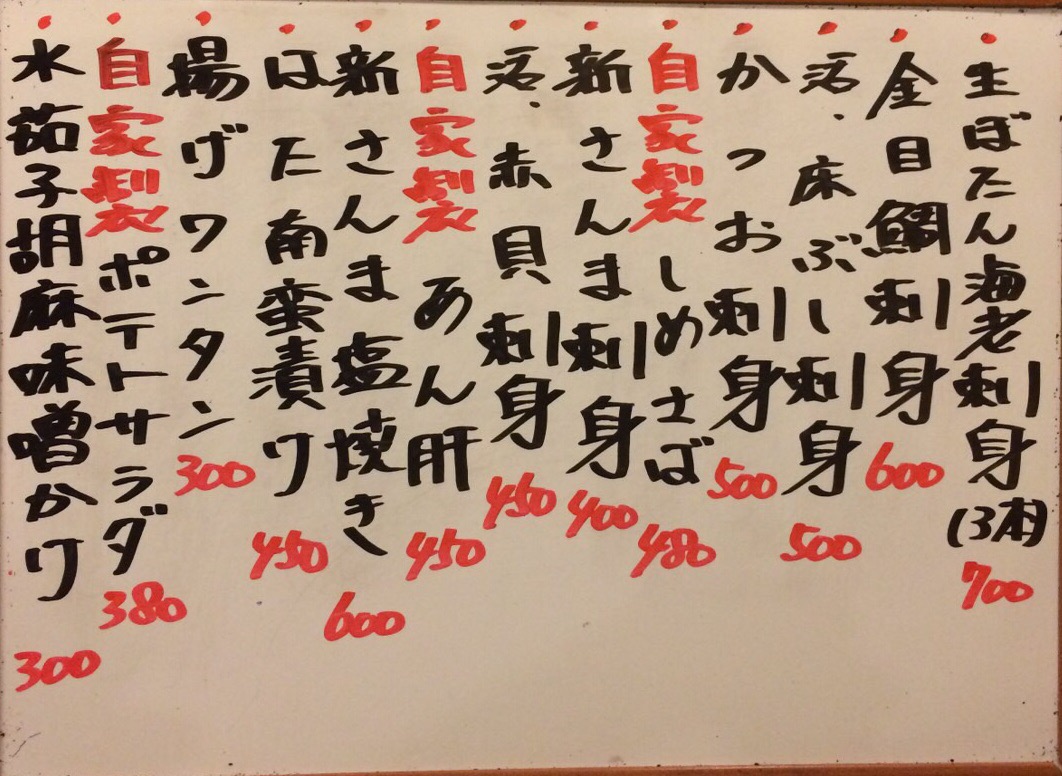 生ぼたん海老刺身(3本)700
金目鯛刺身600
活、床ぶし刺身500
かつお刺身500
自家製しめさば480
新さんま刺身400
活、赤貝刺身450
自家製あん肝450
新さんま塩焼き600
はた南蛮漬け450
揚げワンタン300
自家製ポテトサラダ380
水茄子胡麻味噌かけ300